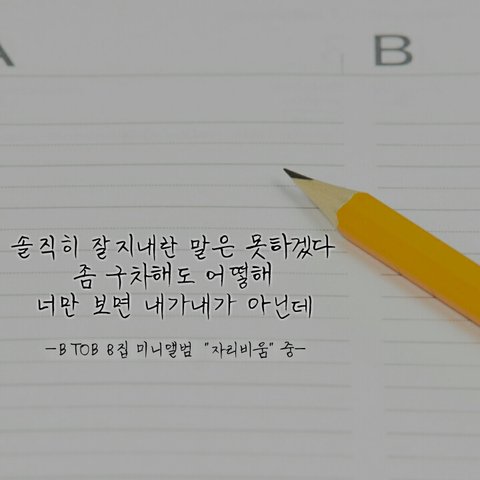 A B
솔직히 잘지내란 말은 못하겠다
좀 구차해도 어떻해
너만 보면 내가내가 아닌데
-BTOB 8집 미니앨범 "자리비움" 중-